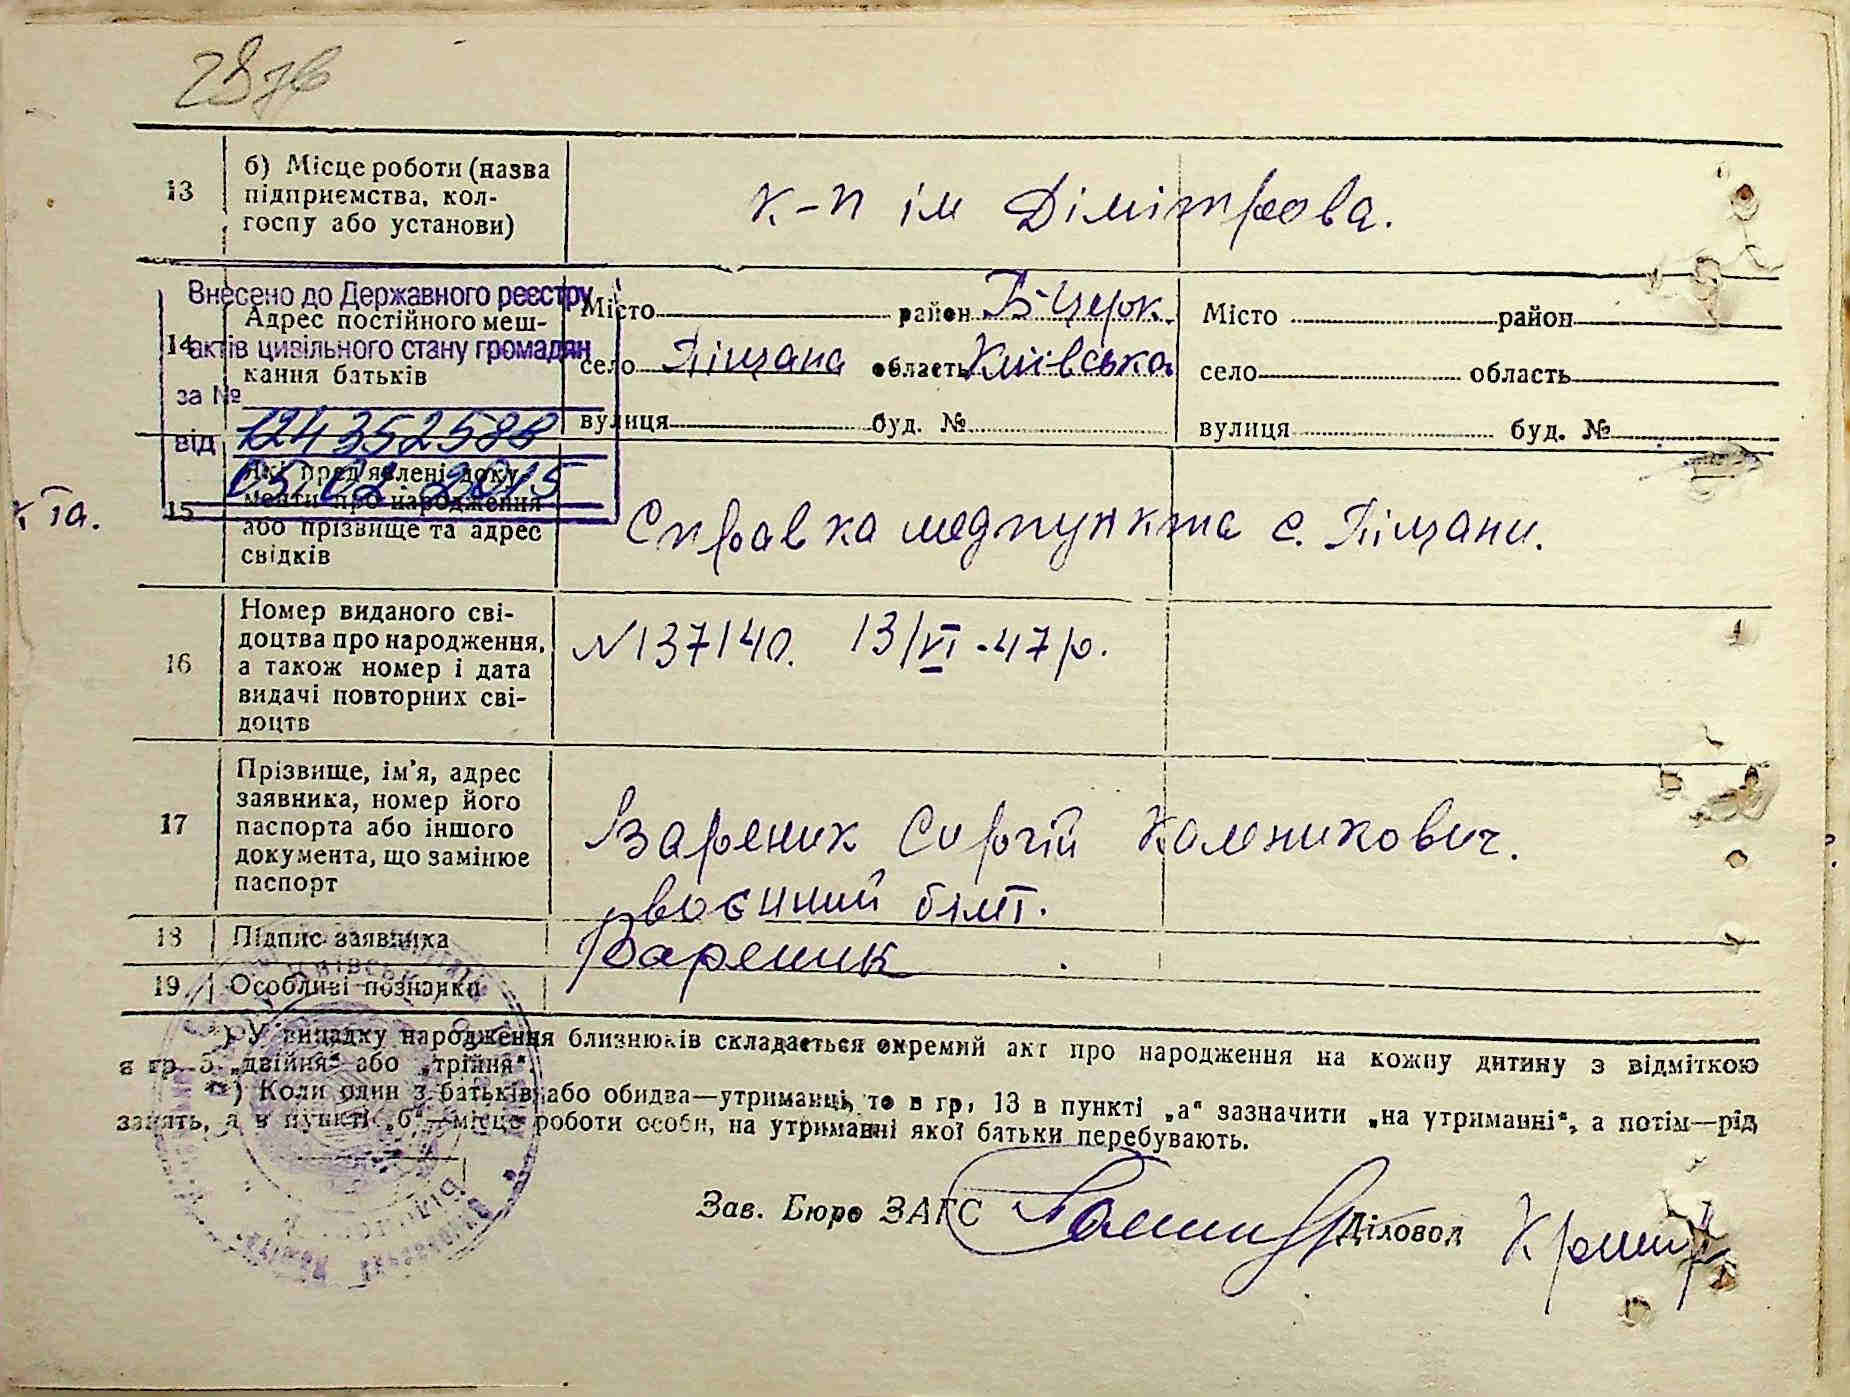 13
б) Місце роботи (назва
підприємства, кол-
госпу або установи)
к-п ім Дімітрова.
Внесено до Державного реєстру
актів цивільного стану громадян
за № 124352588
від 05.02.2015
14
Адрес постійного меш-
кання батьків
Місто район Б-Церк.
село Піщана область Київська
вулиця буд. №
Місто район
село область
вулиця буд. №
15
Які пред'явлені доку-
менти про народження
або прізвище та адрес
свідків
Справка медпункта с. Піщани.
16
Номер виданого сві-
доцтва про народження,
а також номер і дата
видачі повторних сві-
доцтв
N137140. 13/VI-47р.
17
Прізвище, ім'я, адрес
заявника, номер його
паспорта або іншого
документа, що замінює
паспорт
Вареник Сергій
воєнний білет.
18
Підпис заявника
Вареник
19
Особливі познанки
*) У випадку народження близнюків складається окремий акт про народження на кожну дитину з відміткою
в гр. 5 „двійня" або „трійня".
**) Коли один з батьків або обидва—утриманці, то в гр. 13 в пункті „а" зазначити „на утриманні", а потім—рід
занять, а в пункті „б"—місце роботи особи, на утриманні якої батьки перебувають.
Зав. Бюро ЗАГС
Діловод